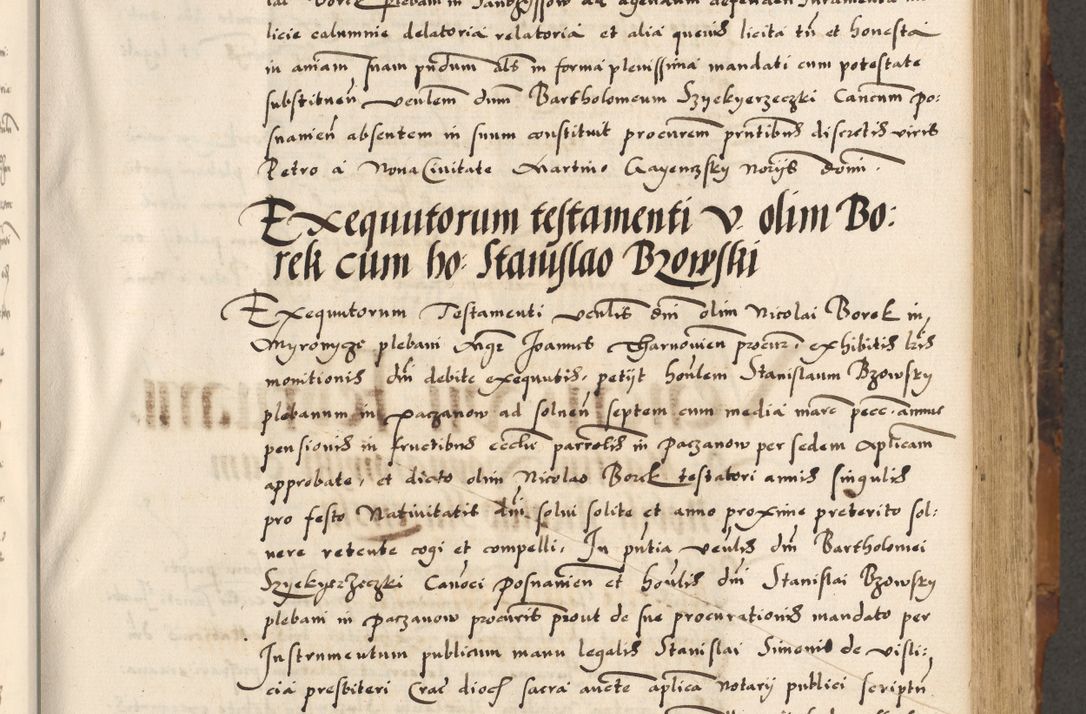 licie calumnie delatoria relatoria et alia quevis licita tn̄ et honesta
in aniam suam pn̄dum als in forma plenissima mandati cum potestate
substituen̄ venlem dnm Bartholomeum Szyekyerzeczki Cancum Po:
snanien̄ absentem in suum constituit procurem pn̄tibus discretis viris
Petro a Nova Civitate Martino Gayenczsky noriis domi.
Exequutorum testamenti v. olim Bo:
rek cum ho: Stanislao Bzowski
Exequutorum Testamenti venlis dni olim Nicolai Borek in
Myronycze plebani Mgr Joannes Tharnovien procur. exhibitis lris
monitionis dni debite exequutis, petijt honlem Stanislaum Bzowsky
plebanum in Paczanow ad solven̄ septem cum media marc pecc. annue
pensionis in fructibus ecclie parrolis in Paczanow per sedem Aplicam
approbate, et dicto olim Nicolao Borek testatori annis singulis
pro festo Nativitatis dni solvi solite et anno proxime preterito sol:
vere retente cogi et compelli, In pn̄tia venlis dni Bartholomei
Szyekyerzeczki Canoci Posnanien et honlis dni Stanislai Bzowsky
plebani in Paczanow procuris prout de sue procurationis mandato per
Instrumentum publicum manu legalis Stanislai Simonis de Visli:
cia presbiteri Crac̄ dioc̄ sacra aucte aplica notarij publici scriptū